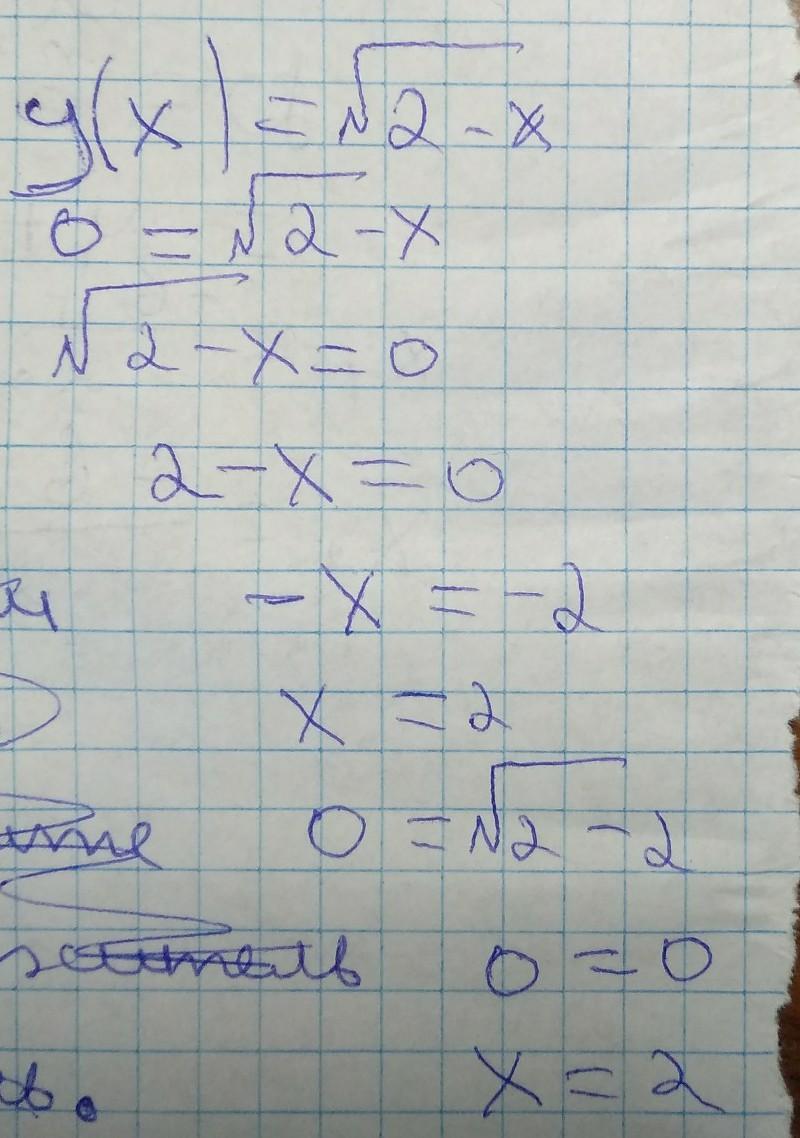 y(x) = √2 - x
0 = √2 - x
√2 - x = 0
2 - x = 0
- x = -2
x = 2
0 = √2 - 2
0 = 0
x = 2